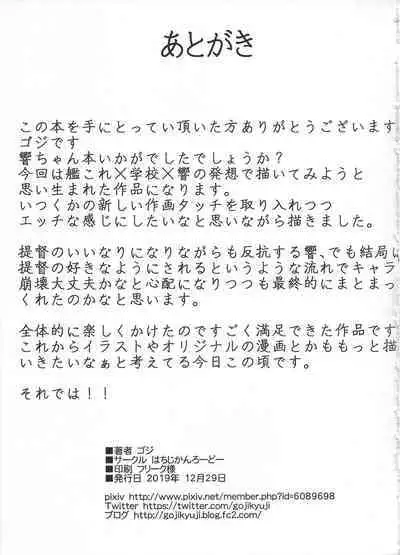 あとがき
この本を手にとってい頂いた方ありがとうございます
ゴジです
響ちゃん本いかがでしたでしょうか？
今回は艦これ×学校×響の発想で描いてみようと
思い生まれた作品になります。
いくつかの新しい作画タッチを取り入れつつ
エッチな感じにしたいなと思いながら描きました。
提督のいいなりになりながらも反抗する響、でも結局に
提督の好きなようにされるというような流れでキャラ
崩壊大丈夫かなと心配になりつつも最終的にまとまっ
くれたのかなと思います。
全体的に楽しくかけたのですごく満足できた作品です
これからイラストやオリジナルの漫画とかももっと描
いきたいなぁと考えてる今日この頃です。
それでは！！
■著者 ゴジ
■サークル はちじかんろーどー
■印刷 フリーク様
■発行日 2019年 12月29日
pixiv http://www.pixiv.net/member.php?id=6089698
Twitter https://twitter.com/gojikyuji
ブログ http://gojikyuji.blog.fc2.com/